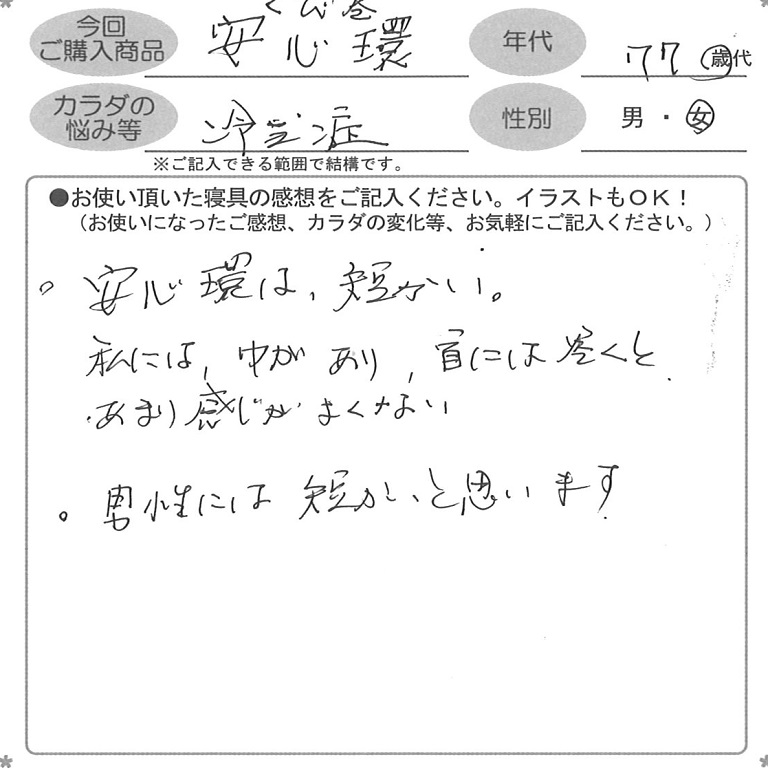 今回
ご購入商品
くび巻
安心環
年代
77 歳代
カラダの
悩み等
冷え症
性別
男・女
※ご記入できる範囲で結構です。
●お使い頂いた寝具の感想をご記入ください。イラストもOK!
(お使いになったご感想、カラダの変化等、お気軽にご記入ください。)
。安心環は、短かい。
私には、中があり、首には巻くと
あまり感じがよくない
。男性には短かいと思います